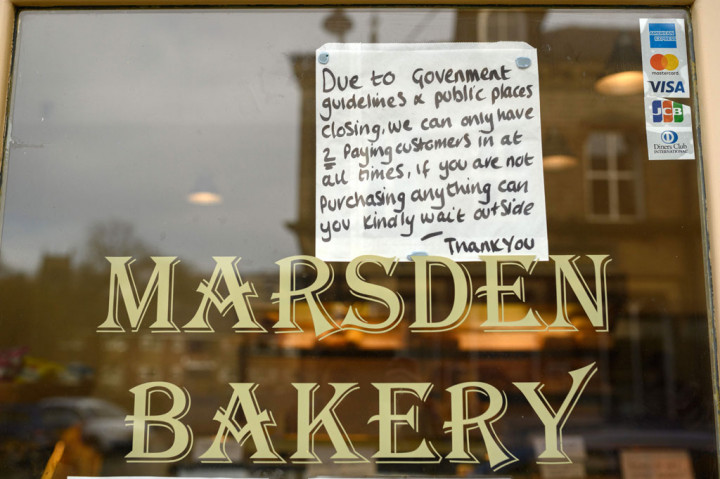 Due to Govenment
guidelines & public places
closing, we can only have
2 Paying customers in at
all times, if you are not
purchasing anything can
you kindly wait outside
– Thankyou
AMERICAN EXPRESS
mastercard
VISA
JCB
Diners Club
INTERNATIONAL
MARSDEN
BAKERY